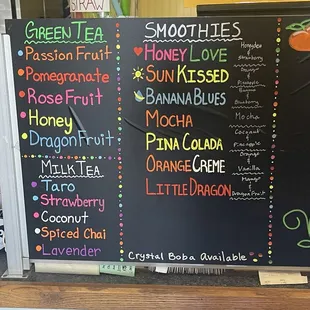 STRAW
GREEN TEA
Passion Fruit
Pomegranate
Rose Fruit
Honey
Dragon Fruit
MILK TEA
Taro
Strawberry
Coconut
Spiced Chai
Lavender
SMOOTHIES
HONEY LOVE
Honeydew
&
Strawberry
SUN KISSED
Orange
&
Pineapple
BANANA BLUES
Banana
&
Blueberry
MOCHA
Mocha
PINA COLADA
Coconut
&
Pineapple
ORANGE CREME
Orange
&
Vanilla
LITTLE DRAGON
Mango
&
Dragon Fruit
Crystal Boba Available